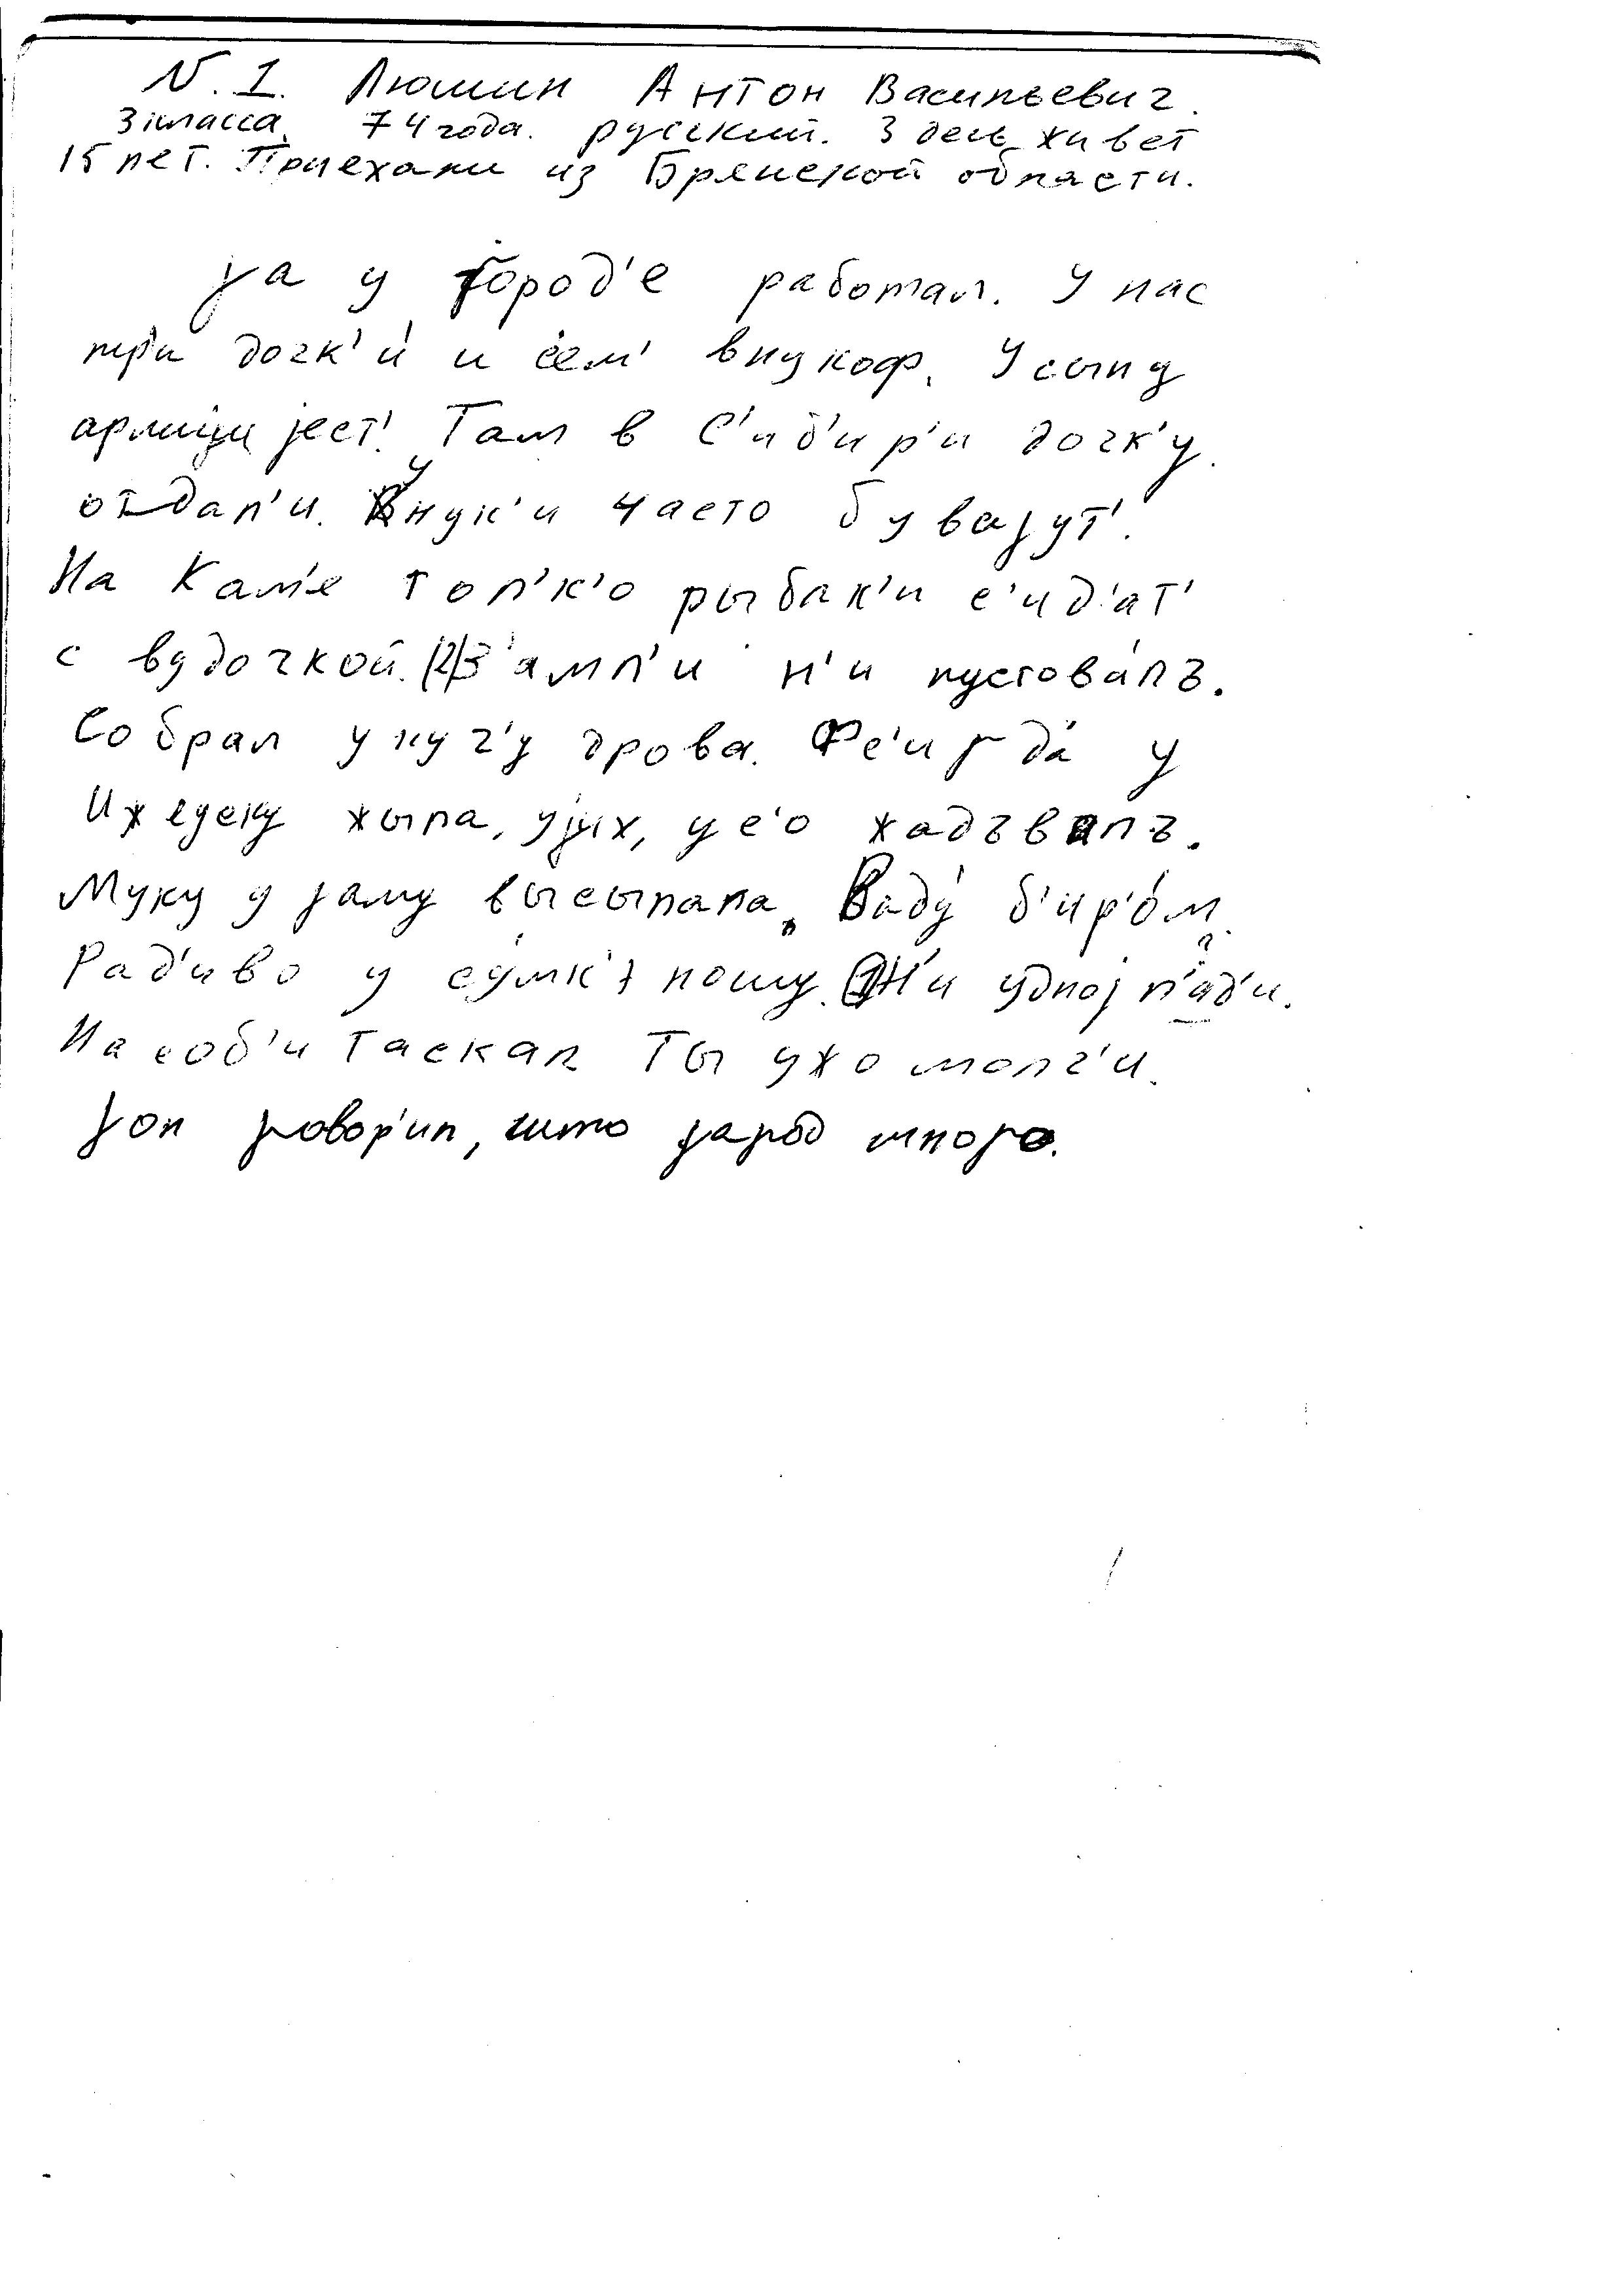 N. 1. Люшин Антон Васильевич.
3 класса. 74 года. русский. Здесь живет
15 лет. Приехали из Брянской области.
jа у γород'е работал. У нас
три дочк'и и сем' внукоф. У сыну
jест'. Там в С'иб'ир'и дочк'у
отдал'и. Унук'и часто бувајут'.
На Кам'е тол'к'о рыбак'и с'ид'ат'
с вудочкой. (2) З'амл'и н'и пустовáлъ.
Собрал у куч'у дрова. Фс'иγдá у
Ижевску жыла, у jих, у с'о хадъвалъ.
Муку у jаму высыпала. Вадý б'ир'óм.
Рад'иво у сýмк'ъ ношу. (1) Н'и уднoj п'ад'и.
На соб'и таскал. Ты ужо молч'и.
jон γовор'ил, што γарóд мноγо.